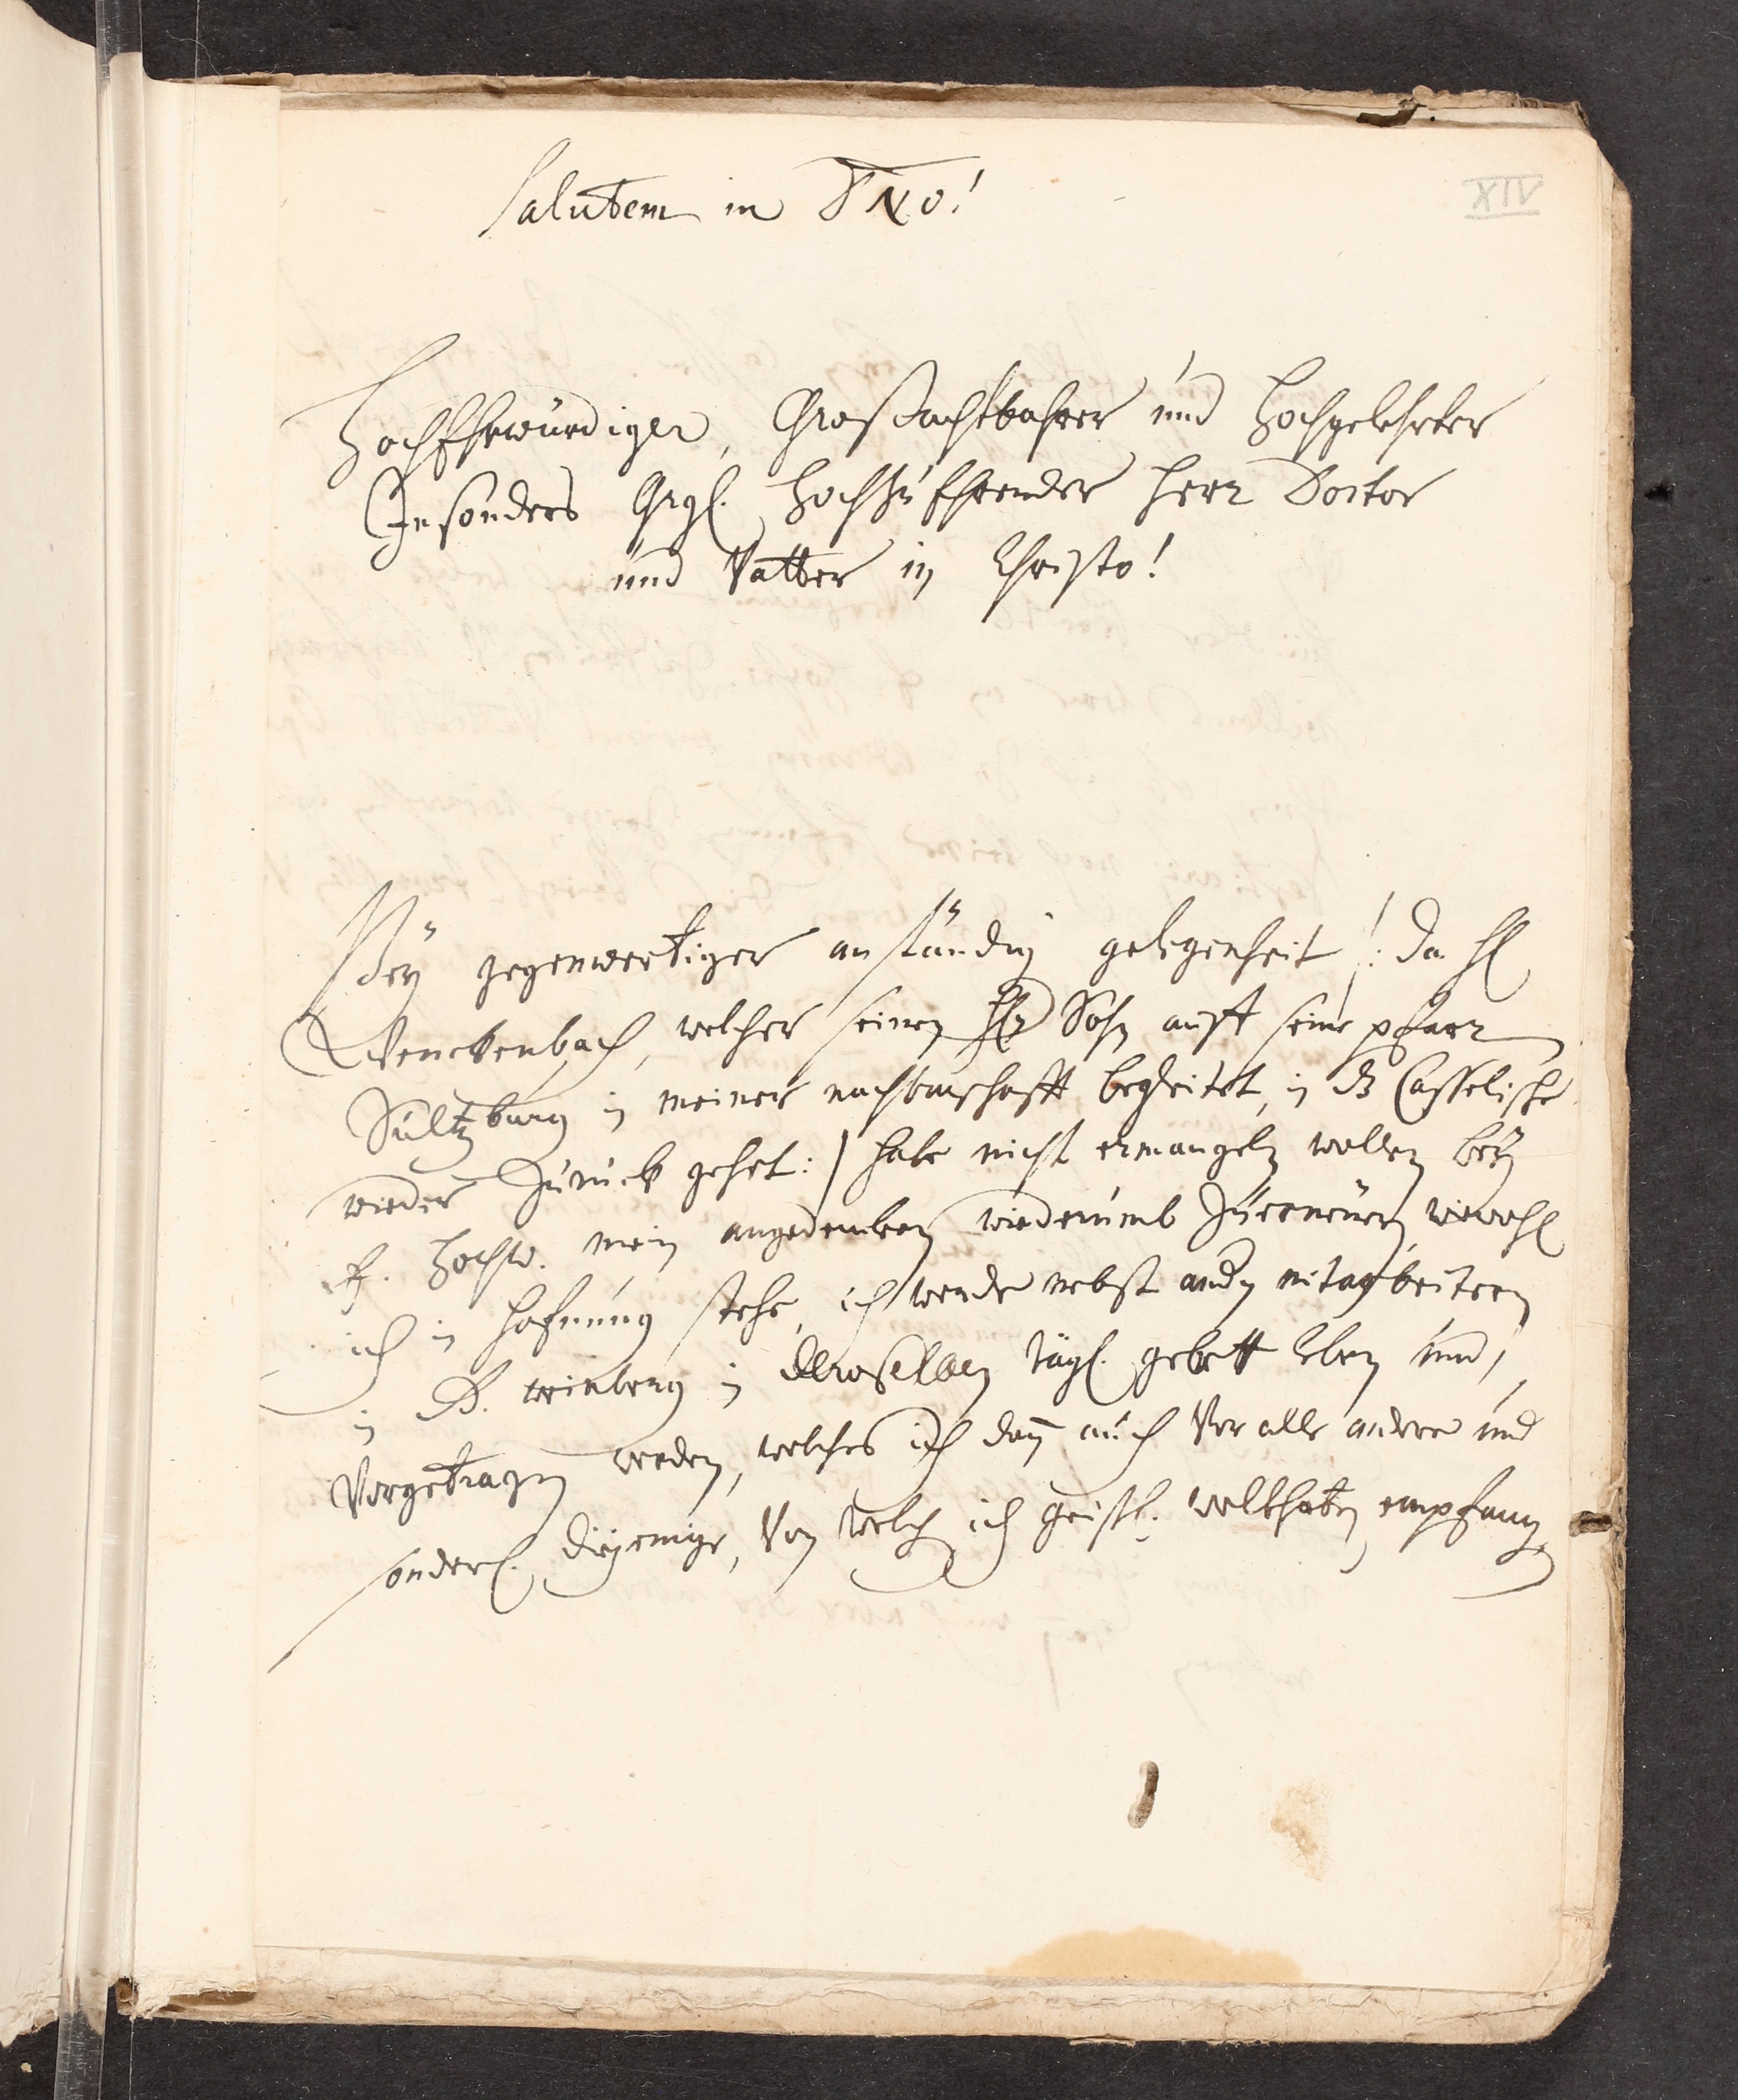 XIV
Salutem in DNO!
HochEhrwürdiger, Großachtbahrer und Hochgelehrter
Insonders Grgl. HochzuEhrender Herr Doctor
und Vatter in Christo!
Bey gegenwertiger anständig gelegenheit /: da H
Wenckenbach, welcher seinen H Sohn auff seine pfarr
Sultzburg in meiner nachbarschafft begleitet, in dz Casselische
wieder zurück gehet: / habe nicht ermangeln wollen bey
E. Hochw. mein angedencken wiederumb zuerneuern, wiewohl
ich in hofnung stehe, ich werde nebst andn mitarbeitern
in d. weinberg in deroselben tägl. gebett leben und
Vorgetragen werden, welches ich dan auch Vor alle andere und
sonderl. diejenige, Von welch ich geistl. wolthaten empfang